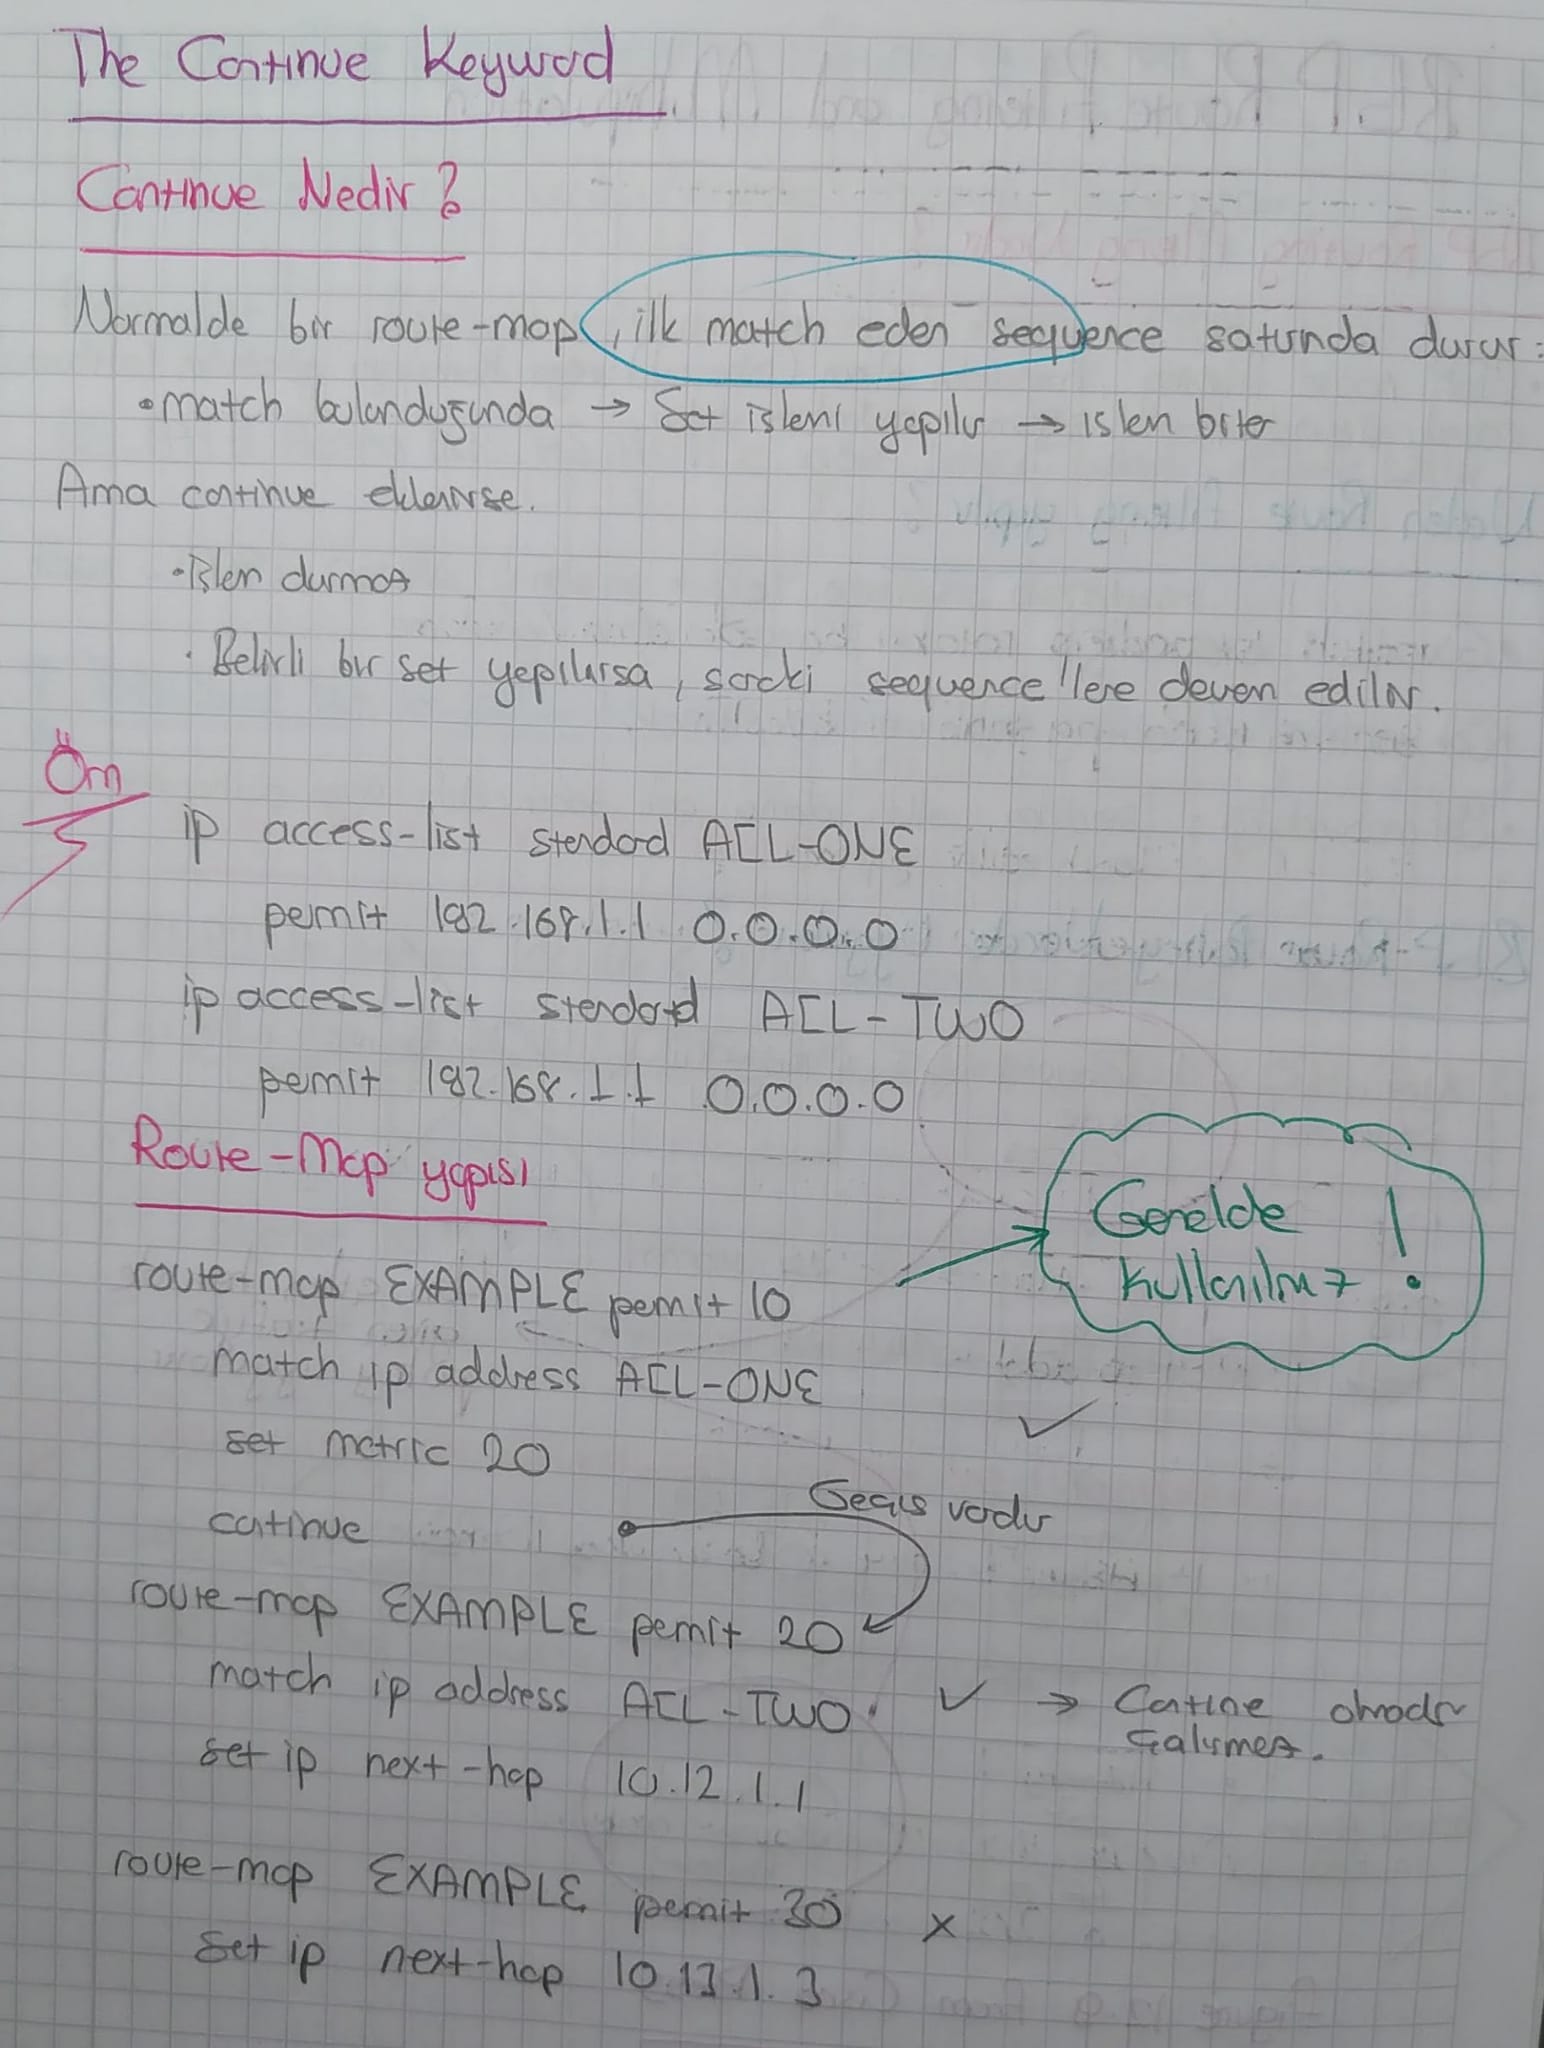 The Continue Keyword
Continue Nedir?
Normalde bir route-map, ilk match eden sequence satırında durur:
• match bulunduğunda → Set işlemi yapılır → işlem biter
Ama continue eklenirse.
• İşlem durmaz
• Belirli bir set yapılırsa, sonraki sequence'lere devam edilir.
Örn
ip access-list standard ACL-ONE
permit 192.168.1.1 0.0.0.0
ip access-list standard ACL-TWO
permit 192.168.1.1 0.0.0.0
Route-Map yapısı
Genelde
kullanılmaz !
route-map EXAMPLE permit 10
match ip address ACL-ONE
set metric 20
continue
Geçiş vardır
route-map EXAMPLE permit 20
match ip address ACL-TWO ✓ → Continue olmadan
çalışmaz.
set ip next-hop 10.12.1.1
route-map EXAMPLE permit 30 x
set ip next-hop 10.13.1.3